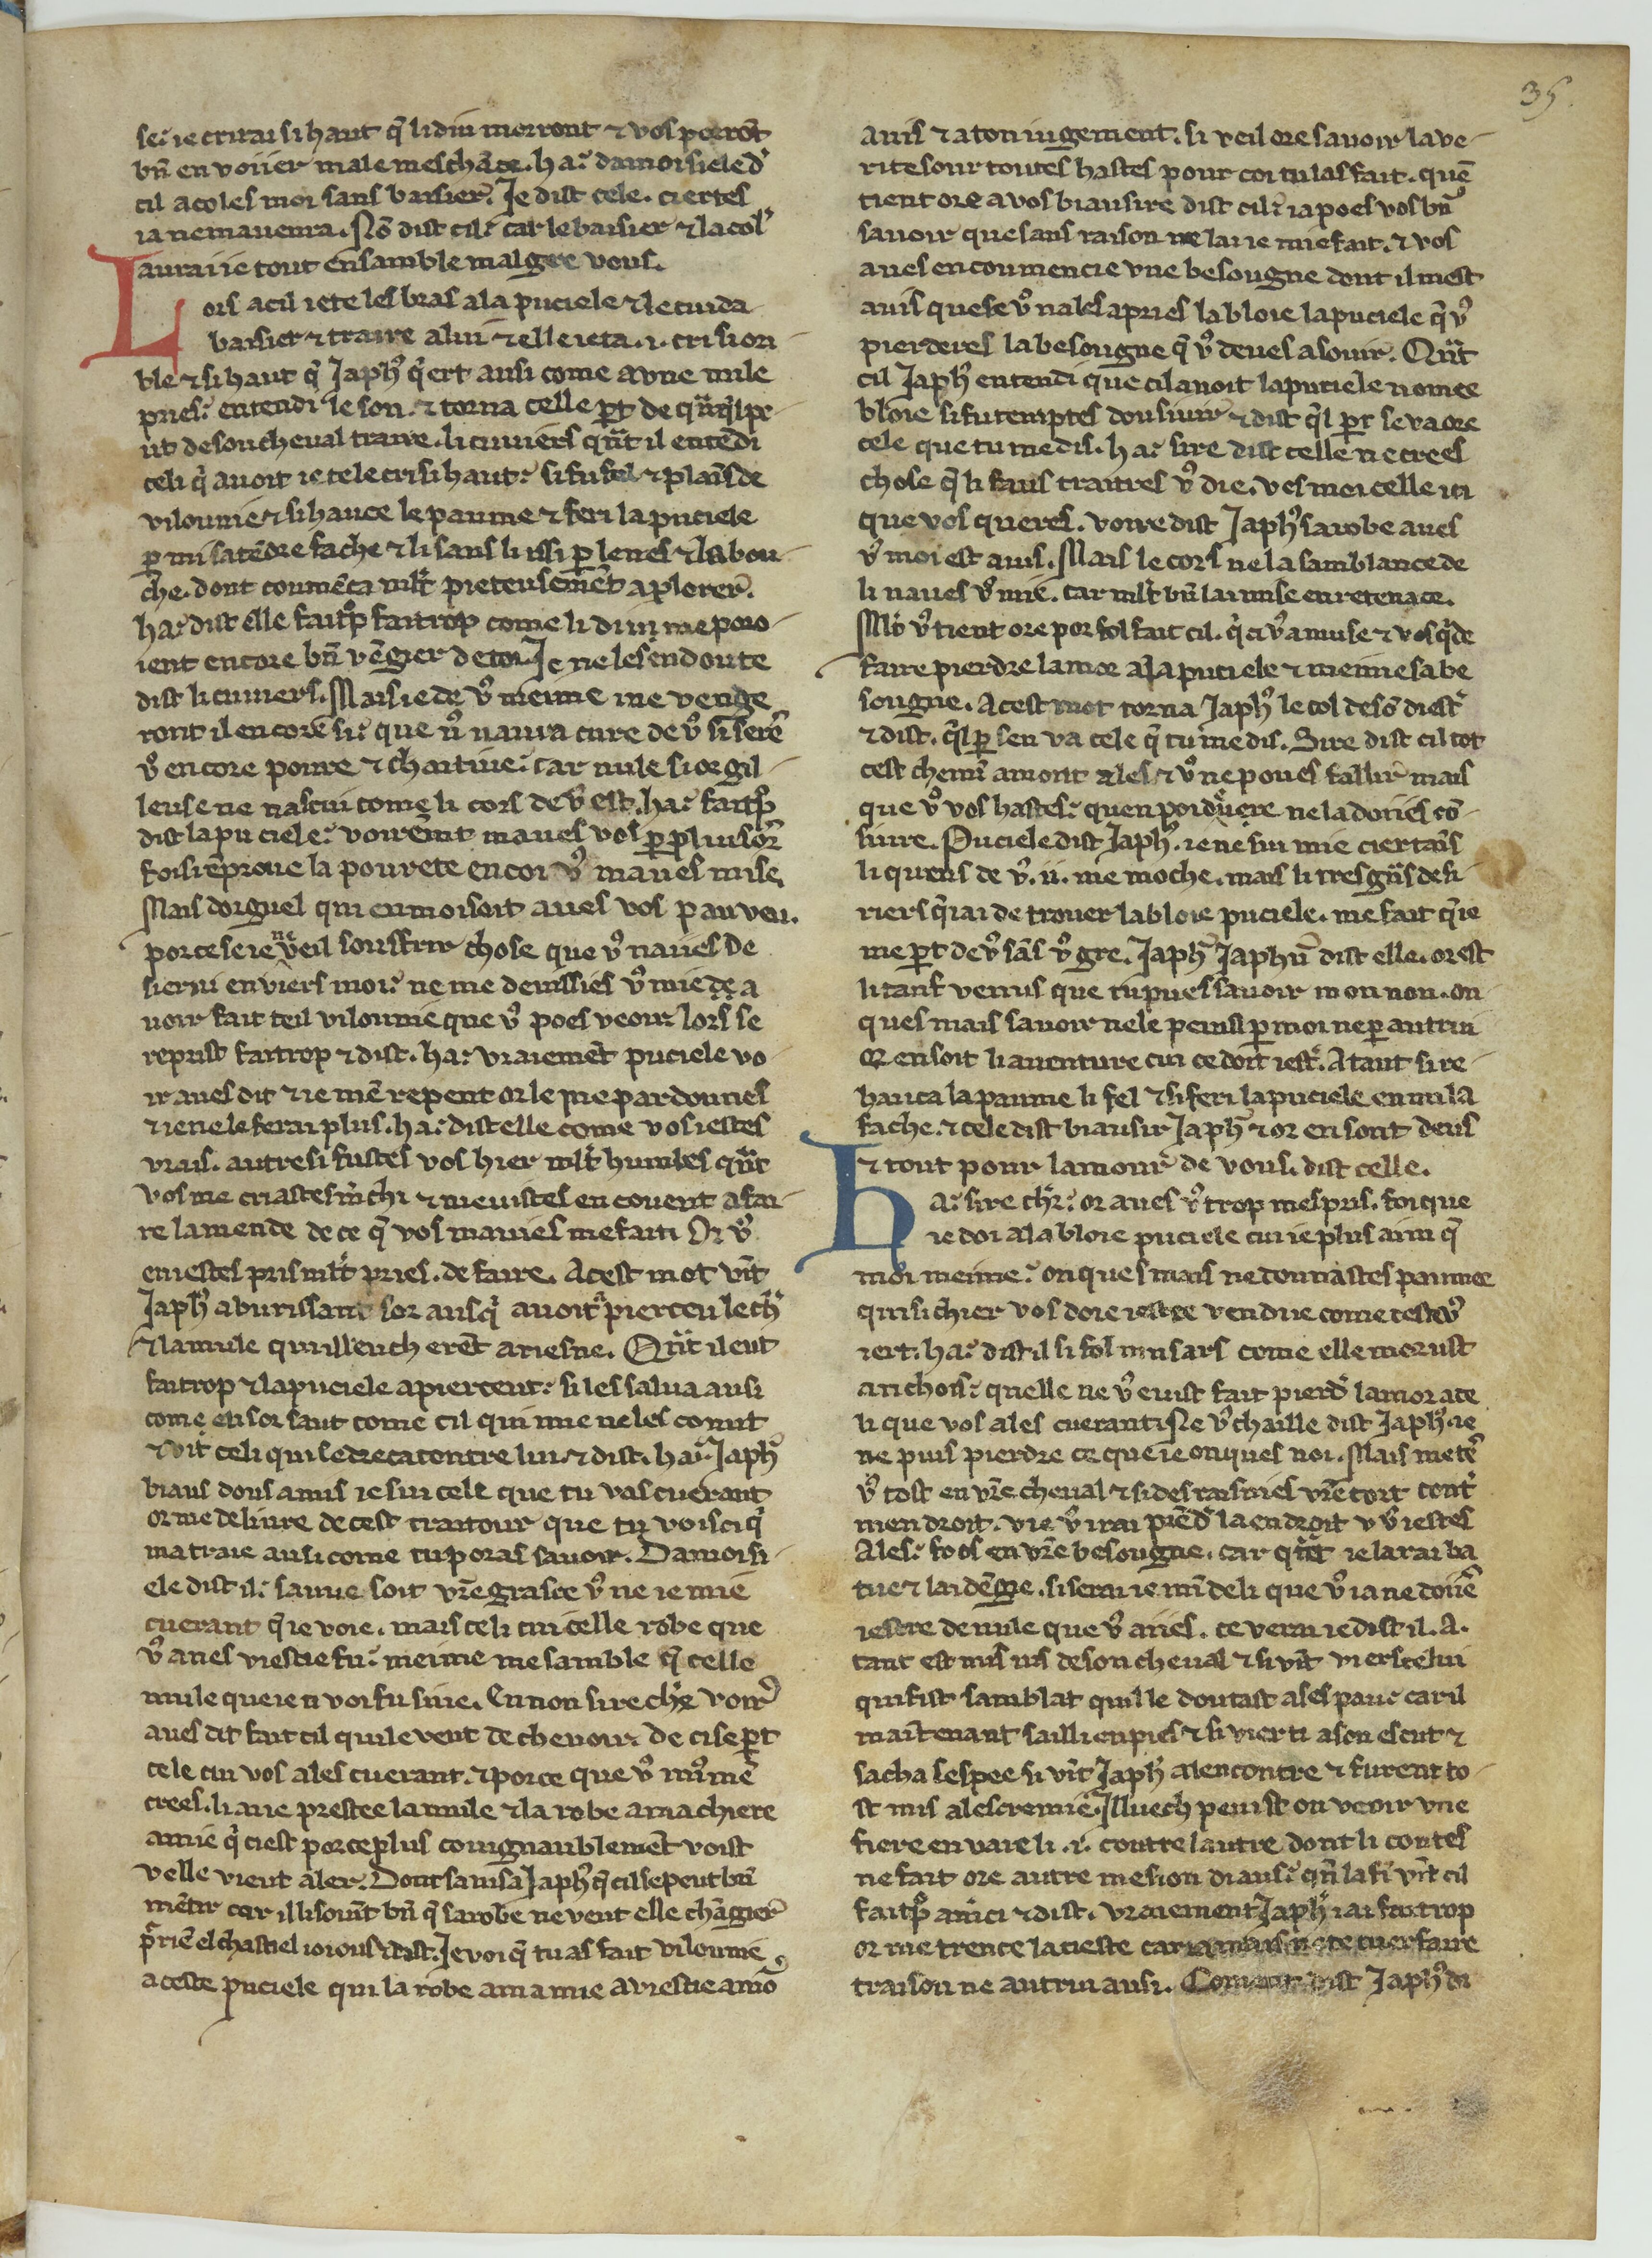 35.
se. ie crirai si haut q̃ li diu morront ⁊ vos poeront
bñ envoiier male meschãce. ha. damoisiele d
cil acoles moi sans baisier. Je dist cele. ciertes
ia ne mavenra. Nõ dist cil. car le baisier ⁊ lacol
aurai ie tout ensamble malgre vous.
Lors a cil iete les bras a la puciele ⁊ le cuida
baisier ⁊ traire a lui ⁊ elle ieta .i. cri si orri
ble ⁊ si haut q̃ Japh' q̃ ert ausi come a une mile
pries. entendi le son. ⁊ torna celle p̱t de
ut de son cheval traire. li cuviers q̃nt il entẽdi
celi q̃ avoit iete le cri si haut. si fu fel ⁊ plaīs de
vilounie ⁊ si hauce le paume ⁊ feri la puciele
p̱mi sa tẽdre fache ⁊ li sans li issi p̱ le nes ⁊ la bou
che. dont coumẽca mlt pieteusemẽt a plorer.
ha. dist elle faitp̃ faitrop come li diu me poro
ient encore bñ vẽgier de toi. Je ne les en doute
dist li cuviers. Mais ie de v᷒ meime me venge
ront il encore si. que n᷒ naura cure de v᷒ si seres
v᷒ encore povre ⁊ chaitive. car nule si orgil
leuse ne nascui come li cors de v᷒ est. ha. faitp̃
dist la puciele. voiremt maves vos p̱ pluisors
fois reprove la povrete en coi v᷒ maves mise.
Mais dorguel qui en moi soit aves vos pau veu.
por ce se ie ne veil soufrir chose que v᷒ navies de
siervi enviers moi. ne me deuissies v᷒ mie de a
voir fait teil vilounie que v᷒ poes veoir. lors se
reprist faitrop ⁊ dist. ha. vraiemẽt puciele vo
ir aves dit ⁊ ie mẽ repent or le me pardounes
⁊ ie ne le ferai plus. ha. dist elle come vos iestes
vrais. autresi fustes vos hier mlt humles q̃nt
vos me criastes m̃chi ⁊ mevistes en covent a fai
re lamende de ce q̃ vos mavies mesfait. Or v᷒
en iestes pris mlt pries. de faire. A cest mot vīt
Japh' aburissant sor ausq̃ avoit apierceu le ch'
⁊ la mule quilleuch erẽt ariesne. Q̃nt il eut
faitrop ⁊ la puciele apiercent. si les salua ausi
come en sorsaut come cil qui mie ne les conut
⁊ vit celi qui se dreca contre lui. ⁊ dist. ha. Japh'
biaus dous amis ie sui cele que tu vas cuerant
or me delivre de cest traitour que tu vois ci q̃
ma traie ausi come tu poras savoir. Damoisi
ele dist il. sauve soit vr̃e grasce v᷒ ne ie mie
cuerant q̃ ie voie. mais celi cui celle robe que
v᷒ aves viestie fu. meime me samble q̃ celle
mule que ie n voi fu siue. En non sire ch'r voir
aves dit fait cil qui le veut dechevoir. de ci se p̱t
cele cui vos ales cuerant. ⁊ por ce que v᷒ mĩ mẽ
crees. li aie prestee la mule ⁊ la robe a ma chiere
amie q̃ ciest por ce plus covignaublemẽt voist
v elle vient aler. Dont savisa Japh' q̃ cil se peut bñ
mẽtir car il li souvīt bñ q̃ sa robe ne veut elle chãgier
p̃riẽ el chastiel ioious ⁊ dist. Je voi q̃ tu as fait vilounie
a ceste puciele qui la robe a mamie a viestie a mõ
avis ⁊ a ton iugement. si veil ore savoir la ve
rite sour toutes hastes pour coi tu las fait. que
tient ore a vos biau sire dist cil. ia poes vos bñ
savoir que sans raison ne lai ie mie fait. ⁊ vos
aves encoumencie une besougne dont il mest
avis que se v᷒ nales apries la bloie la puciele q̃ v᷒
pierderes la besougne q̃ v᷒ deves asouir. Q̃nt
cil Japh' entendi que cil avoit la puciele nomee
bloie si fu temptes dou sivir ⁊ dist q̃l p̱t se va ore
cele que tu me dis. ha. sire dist celle ne crees
chose q̃ li faus traitres v᷒ die. ves moi celle ici
que vos queres. voire dist Japh' sa robe aves
v᷒ moi est avis. Mais le cors ne la samblance de
li naves v᷒ mie. car mlt bñ lai mise en retenãce.
Mlt v᷒ tient ore por fol fait cil. q̃ ci v᷒ amuse ⁊ vos q̃de
faire pierdre lamor a la puciele ⁊ meime sa be
sougne. A cest mot torna Japh' le col de sõ diest'
⁊ dist. q̃l p̱ sen va cele q̃ tu me dis. Sire dist cil tot
cest chemĩ amont ales ⁊ v᷒ ne poues fallir mais
que v᷒ vos hastes. quen poi duere ne la doiies cõ
sivre. Puciele dist Japh'. ie ne sui mie ciertaĩs
li quens de v᷒ .ii. me moche. mais li tres grãs desi
riers q̃ iai de trover la bloie puciele. me fait q̃ ie
me p̱t de v᷒ sãs v᷒ gre. Japh' Japhũ dist elle. or est
li tans venus que tu pues savoir mon non. on
ques mais savoir nele peuis p̱ moi ne p̱ autrui
Or en soit li aventure cui ce doit iestr. A tant si re
hauca la paume li fel ⁊ si feri la puciele enmi la
fache. ⁊ cele dist biau sir Japh' ⁊ or en sont deus
⁊ tout pour lamour de vous. dist celle.
Ha. sire ch'r. or aves v᷒ trop mespris. foi que
ie doi a la bloie puciele cui ie plus aim q̃
moi meime. onques mais ne donnastes paumee
qui si chier vos doie iestre vendue come ceste v᷒
iert. ha. dist il li fol musars come elle morust
anchois. quelle ne v᷒ euist fait pierdr lamor a ce
li que vos ales cuerant. Ne v᷒ chaille dist Japh'. ie
ne puis pierdre ce que ie onques noi. Mais metes
v᷒ tost en vr̃e cheval ⁊ si desraisnies vr̃e tort contr
men droit. v ie v᷒ irai prẽdr la endroit v v᷒ iestes
Ales. fo os en vr̃e besougne. car q̃nt ie larai ba
tue ⁊ laidẽgie. si serai ie miĩ de li que v᷒ ia ne doiies
iestre de nule que v᷒ aiies. ce verai ie dist il. A
tant est mis ius de son cheval ⁊ si vīt viers celui
qui fist samblãt quil le doutast asses pau. car il
maītenant sailli en pies ⁊ si vierti a son escut ⁊
sacha lespee si vīt Japh' a lencontre ⁊ furent to
st mis a lescremie. Illuech peuist on veoir une
fiere envaie li .i. contre lautre dont li contes
ne fait ore autre mesion diaus. q̃n la fĩ vīt cil
faitp̃ a m̃ci ⁊ dist. vraiement Japh' iai faitrop
or me trence la tieste car iamais ne te cuer faire
traison ne autrui ausi. Coment dist Japh' di